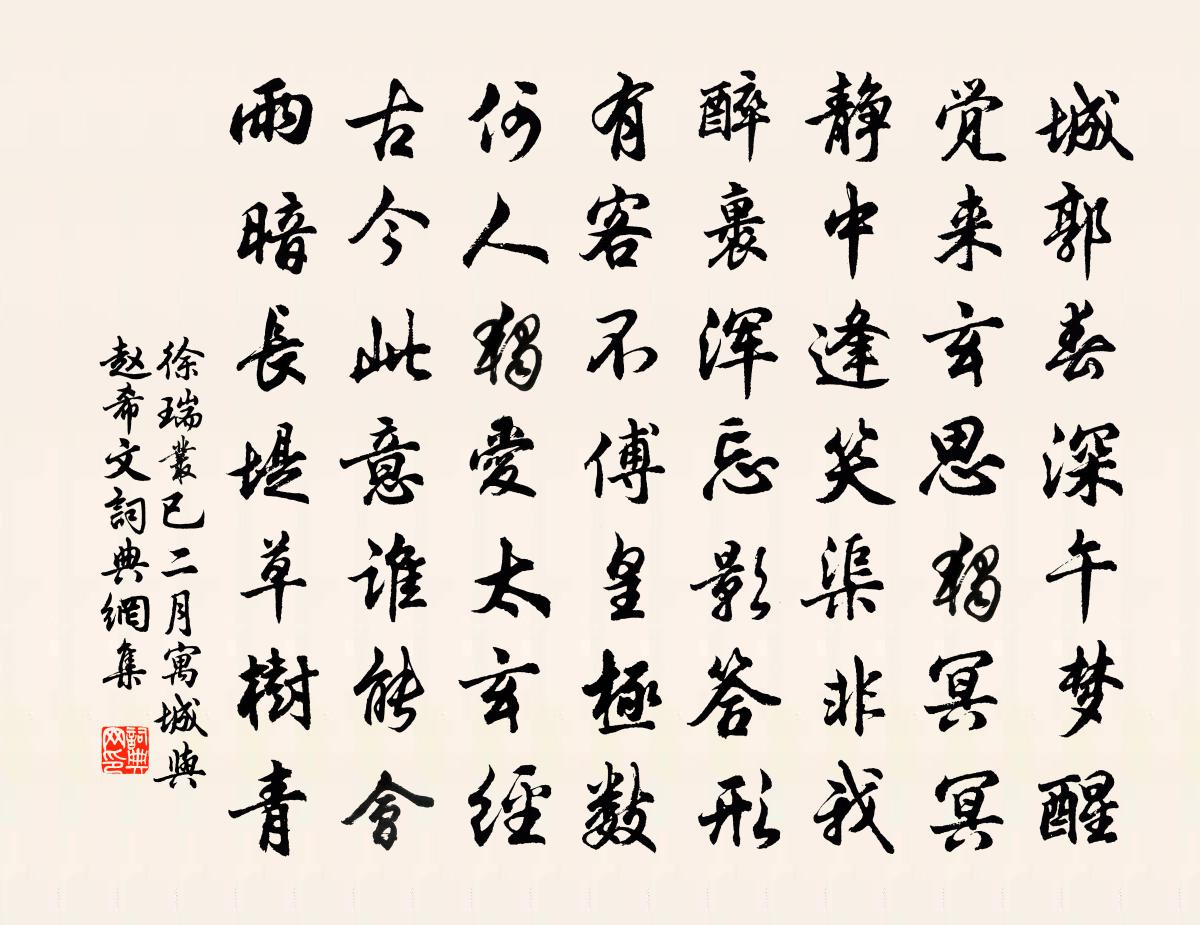 城郭春深午梦醒
觉来玄思独冥冥
静中逢笑渠非我
醉裏浑忘影答形
有客不傅皇極数
何人独愛太玄經
古今此意谁能會
雨暗長堤草樹青
徐瑞叢巳二月寓城與
赵希文詞典網集
詞典网印